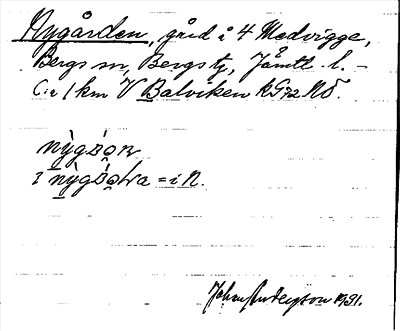 Nygården, gård å 4 Medvigge,
Bergs sn, Bergs tg, Jämtl. l. –
C:a 1 km V Balviken
nỳgǻo̢n
i nỳgǻo̢ra = i N.
John Anderson 1931.